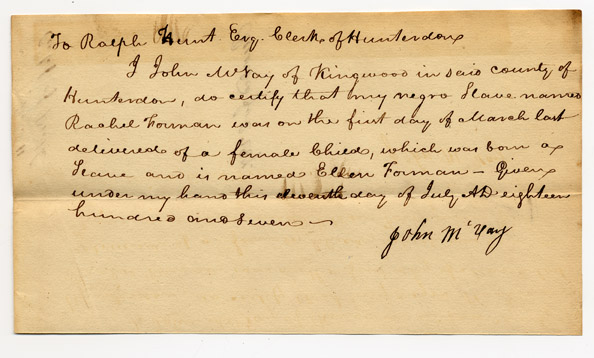 To Ralph Hunt Esq. Clerk of Hunterdon
I John McVay of Kingwood in said county of
Hunterdon, do certify that my negro Slave named
Rachel Forman was on the first day of March last
delivered of a female Child, which was born a
Slave and is named Ellen Forman – Given
under my hand this eleventh day of July AD eighteen
hundred and seven –
John McVay